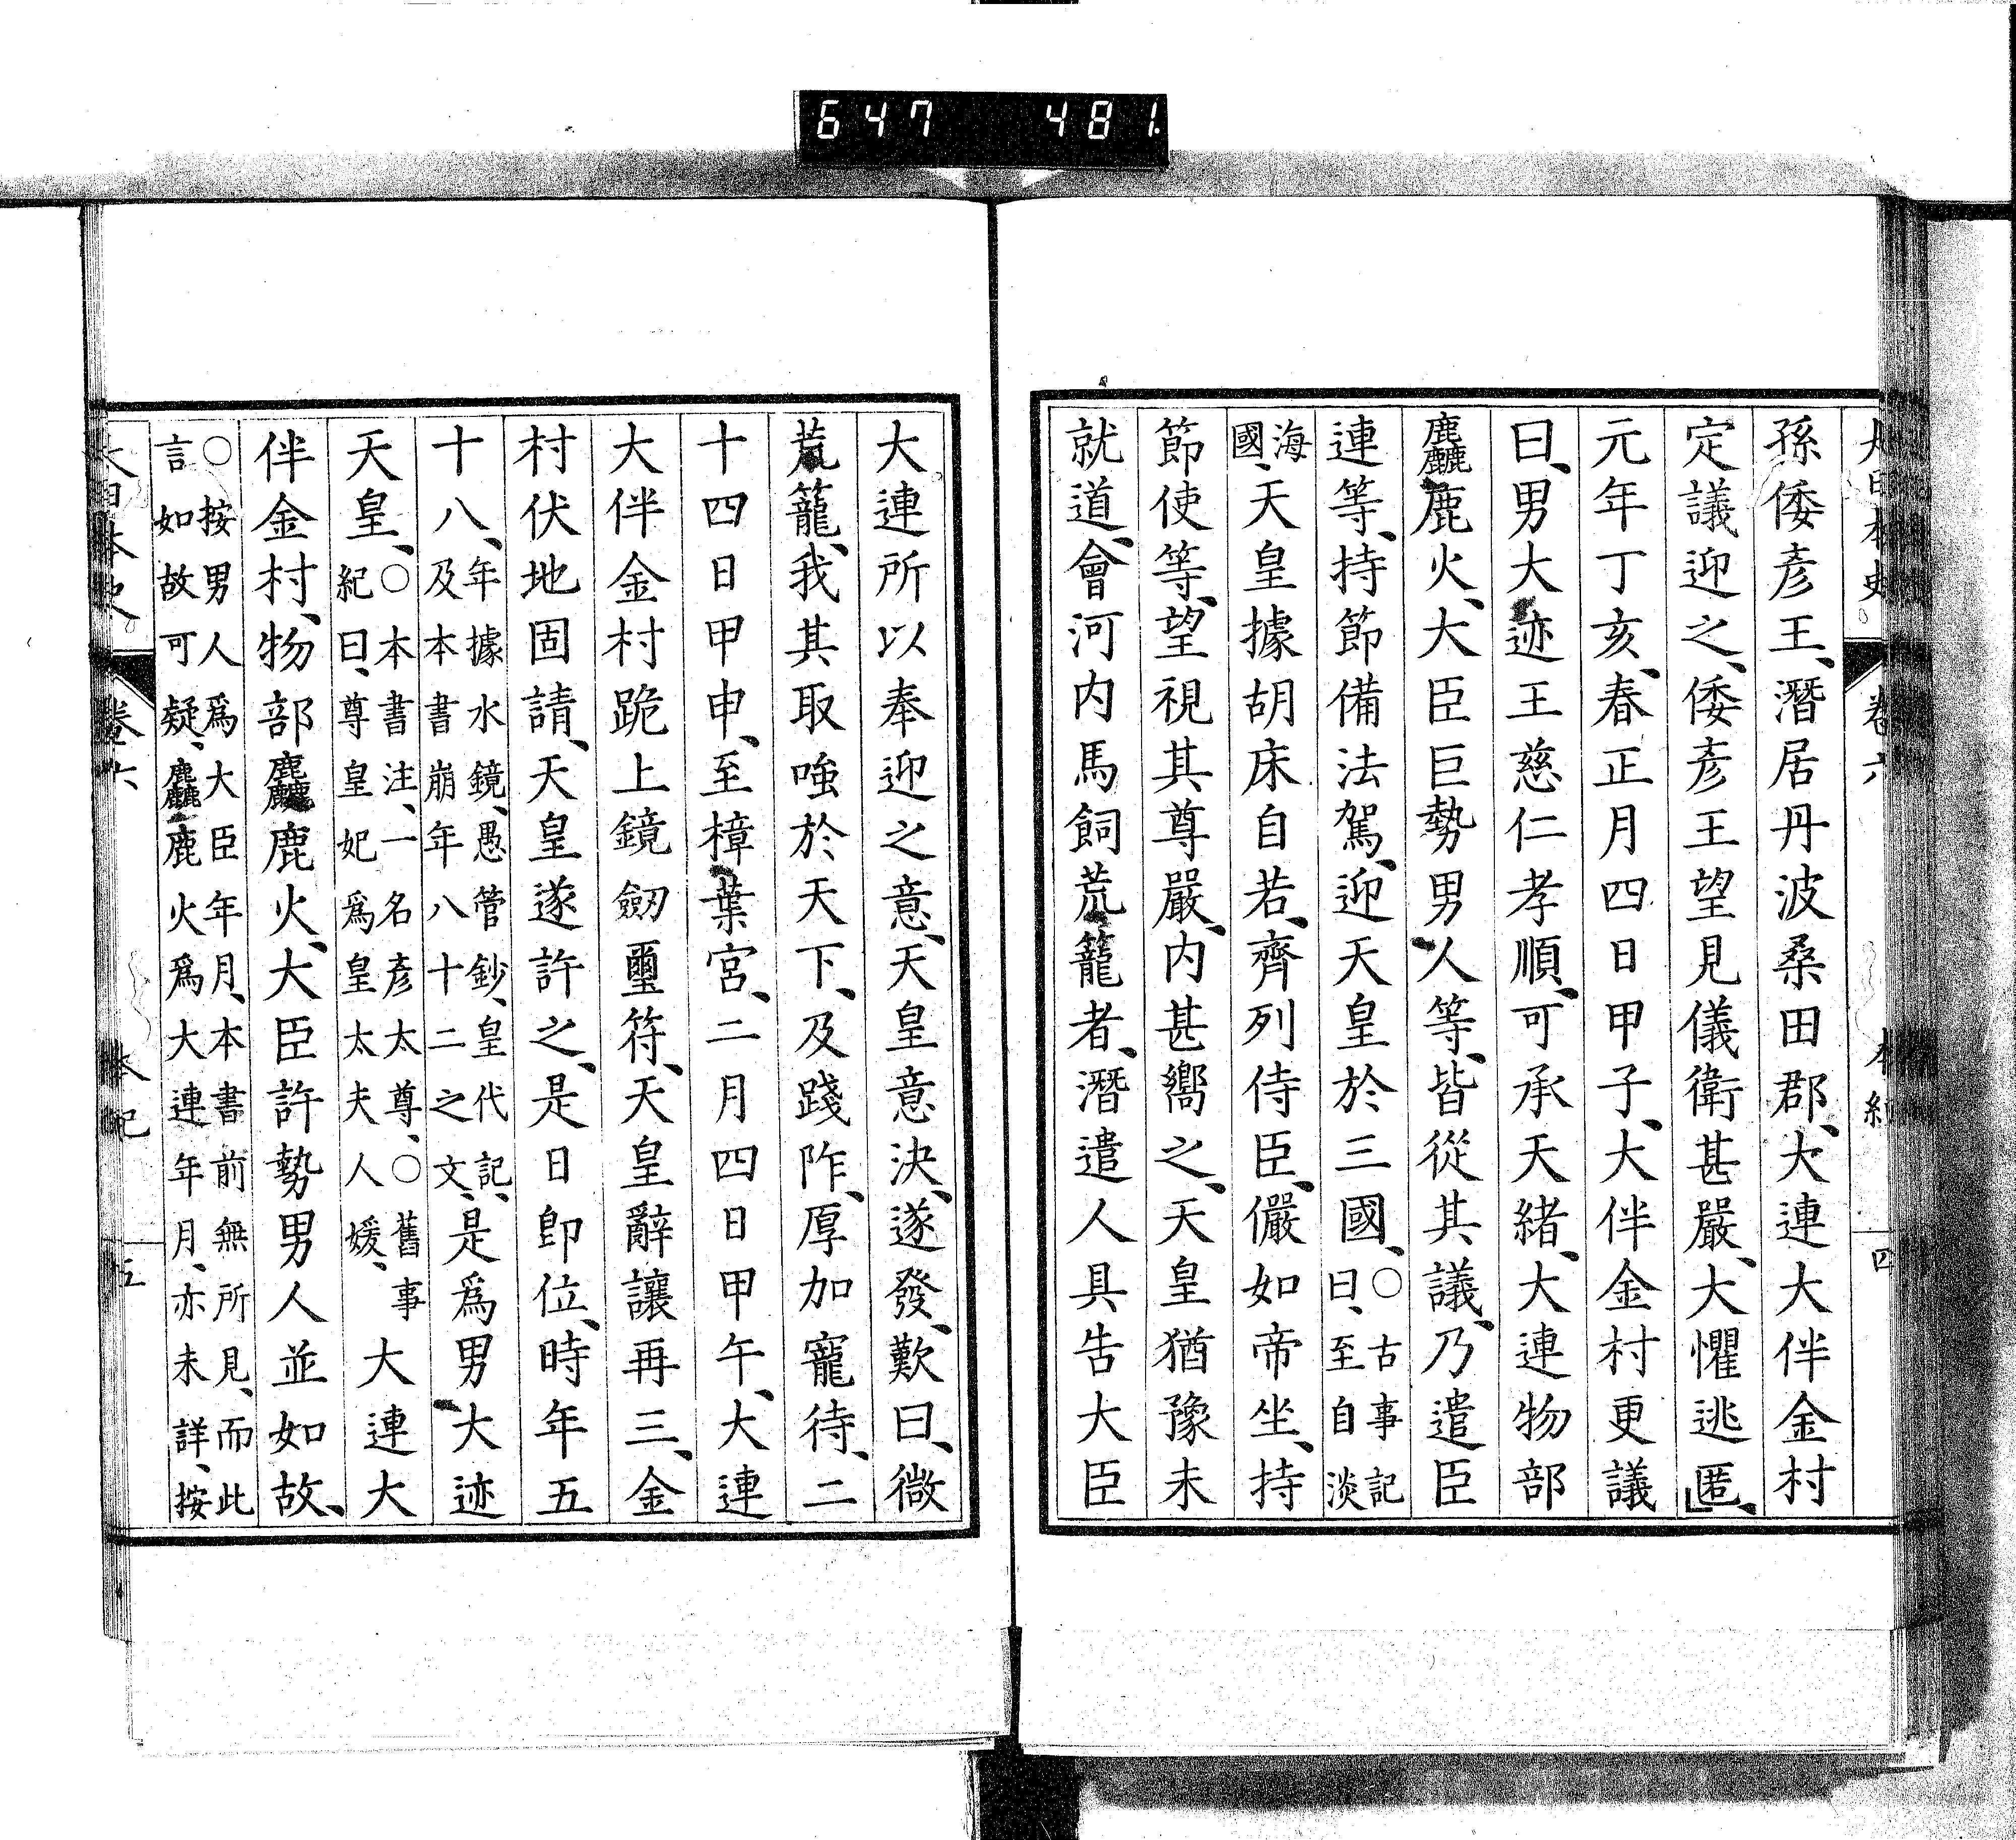 647 481
大日本史 卷六 本紀 四
孫倭彥王、潛居丹波桑田郡、大連大伴金村
定議迎之、倭彥王望見儀衛甚嚴、大懼逃匿、
元年丁亥、春正月四日甲子、大伴金村更議
曰、男大迹王慈仁孝順、可承天緒、大連物部
麤鹿火、大臣巨勢男人等、皆從其議、乃遣臣
連等、持節備法駕、迎天皇於三國、○古事記曰、至自淡
海國、天皇據胡床自若、齊列侍臣、儼如帝坐、持
節使等、望視其尊嚴、內甚嚮之、天皇猶豫未
就道、會河內馬飼荒籠者、潛遣人具告大臣
大連所以奉迎之意、天皇意決、遂發、歎曰、微
荒籠、我其取嗤於天下、及踐阼、厚加寵待、二
十四日甲申、至樟葉宮、二月四日甲午、大連
大伴金村跪上鏡劒璽符、天皇辭讓再三、金
村伏地固請、天皇遂許之、是日卽位、時年五
十八、年據水鏡、愚管鈔、皇代記、及本書崩年八十二之文、是爲男大迹
天皇、○本書注、一名彥太尊、○舊事紀曰、尊皇妃爲皇太夫人媛、大連大
伴金村、物部麤鹿火、大臣許勢男人並如故、
○按男人爲大臣年月、本書前無所見、而此言如故可疑、麤鹿火爲大連年月、亦未詳、按
大日本史 卷六 本紀 五